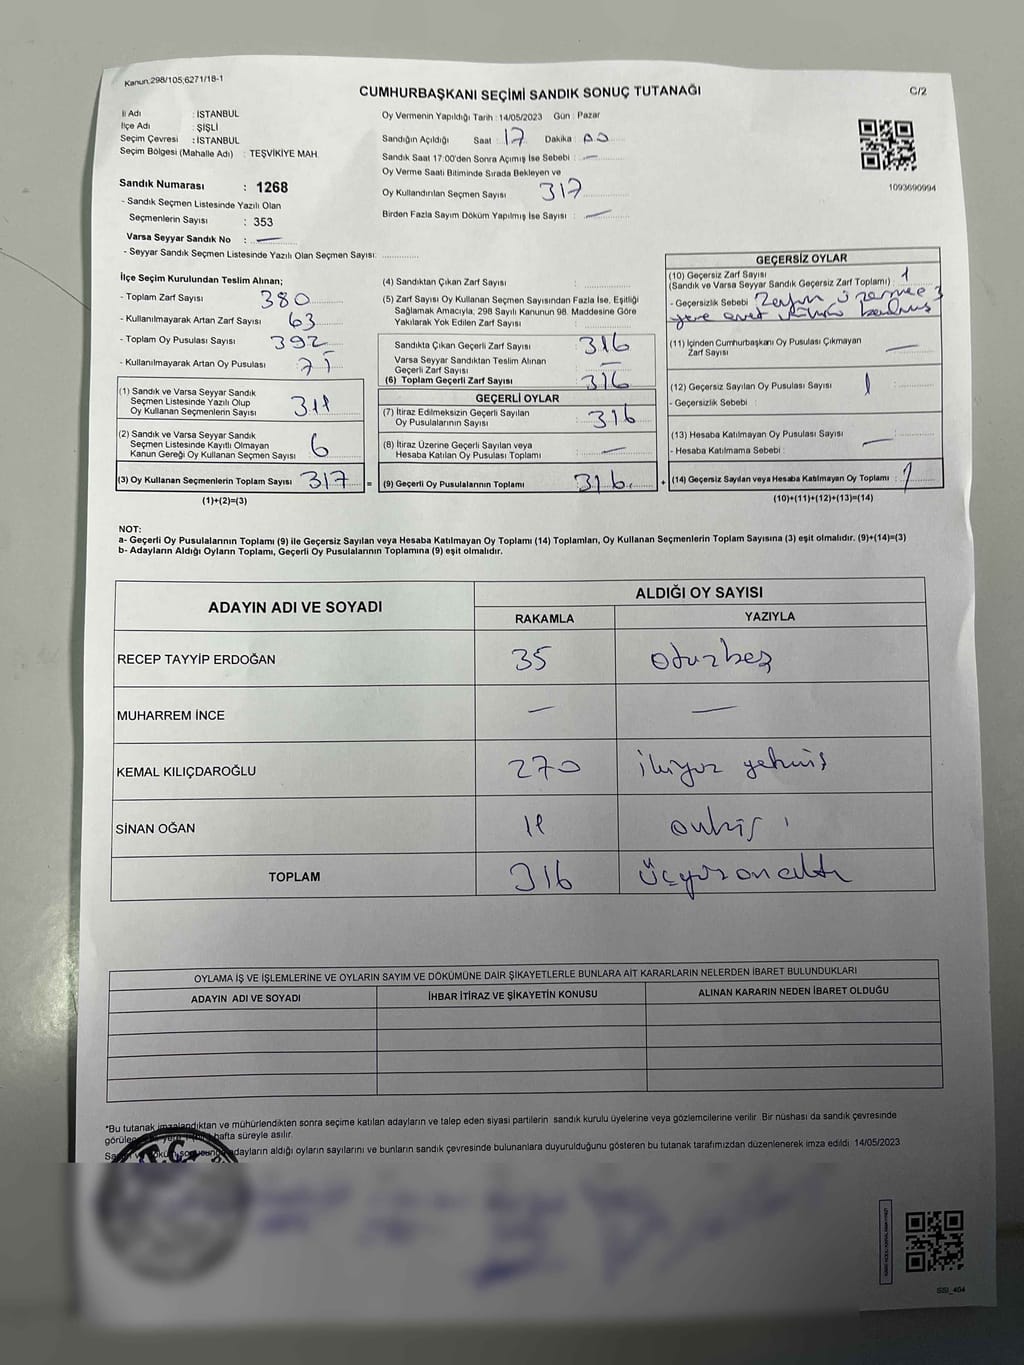 Kanun.298/105,6271/18-1
CUMHURBAŞKANI SEÇİMİ SANDIK SONUÇ TUTANAĞI
C/2
İli Adı : İSTANBUL
İlçe Adı : ŞİŞLİ
Seçim Çevresi : İSTANBUL
Seçim Bölgesi (Mahalle Adı) : TEŞVİKİYE MAH.
Sandık Numarası : 1268
- Sandık Seçmen Listesinde Yazılı Olan
Seçmenlerin Sayısı : 353
Varsa Seyyar Sandık No : —
- Seyyar Sandık Seçmen Listesinde Yazılı Olan Seçmen Sayısı:
Oy Vermenin Yapıldığı Tarih : 14/05/2023 Gün : Pazar
Sandığın Açıldığı Saat : 17 Dakika : 00
Sandık Saat 17:00'den Sonra Açımış İse Sebebi : —
Oy Verme Saati Bitiminde Sırada Bekleyen ve
Oy Kullandırılan Seçmen Sayısı 317
Birden Fazla Sayım Döküm Yapılmış İse Sayısı : —
1093690994
İlçe Seçim Kurulundan Teslim Alınan;
- Toplam Zarf Sayısı 380
- Kullanılmayarak Artan Zarf Sayısı 63
- Toplam Oy Pusulası Sayısı 392
- Kullanılmayarak Artan Oy Pusulası
(1) Sandık ve Varsa Seyyar Sandık
Seçmen Listesinde Yazılı Olup
Oy Kullanan Seçmenlerin Sayısı 311
(2) Sandık ve Varsa Seyyar Sandık
Seçmen Listesinde Kayıtlı Olmayan
Kanun Gereği Oy Kullanan Seçmen Sayısı 6
(3) Oy Kullanan Seçmenlerin Toplam Sayısı 317 =
(1)+(2)=(3)
(4) Sandıktan Çıkan Zarf Sayısı :
(5) Zarf Sayısı Oy Kullanan Seçmen Sayısından Fazla İse, Eşitliği
Sağlamak Amacıyla, 298 Sayılı Kanunun 98. Maddesine Göre
Yakılarak Yok Edilen Zarf Sayısı :
Sandıkta Çıkan Geçerli Zarf Sayısı : 316
Varsa Seyyar Sandıktan Teslim Alınan
Geçerli Zarf Sayısı : —
(6) Toplam Geçerli Zarf Sayısı : 316
GEÇERLİ OYLAR
(7) İtiraz Edilmeksizin Geçerli Sayılan
Oy Pusulalarının Sayısı : 316
(8) İtiraz Üzerine Geçerli Sayılan veya
Hesaba Katılan Oy Pusulası Toplamı : —
(9) Geçerli Oy Pusulalarının Toplamı : 316 +
GEÇERSİZ OYLAR
(10) Geçersiz Zarf Sayısı
(Sandık ve Varsa Seyyar Sandık Geçersiz Zarf Toplamı) : 1
- Geçersizlik Sebebi : Zarfın üzerine 3
yere evet
(11) İçinden Cumhurbaşkanı Oy Pusulası Çıkmayan
Zarf Sayısı : —
(12) Geçersiz Sayılan Oy Pusulası Sayısı : 1
- Geçersizlik Sebebi :
(13) Hesaba Katılmayan Oy Pusulası Sayısı :
- Hesaba Katılmama Sebebi : —
(14) Geçersiz Sayılan veya Hesaba Katılmayan Oy Toplamı : 1
(10)+(11)+(12)+(13)=(14)
NOT:
a- Geçerli Oy Pusulalarının Toplamı (9) ile Geçersiz Sayılan veya Hesaba Katılmayan Oy Toplamı (14) Toplamları, Oy Kullanan Seçmenlerin Toplam Sayısına (3) eşit olmalıdır. (9)+(14)=(3)
b- Adayların Aldığı Oyların Toplamı, Geçerli Oy Pusulalarının Toplamına (9) eşit olmalıdır.
ADAYIN ADI VE SOYADI
ALDIĞI OY SAYISI
RAKAMLA YAZIYLA
RECEP TAYYİP ERDOĞAN 35 otuzbeş
MUHARREM İNCE — —
KEMAL KILIÇDAROĞLU 270 ikiyüz yetmiş
SİNAN OĞAN 11 onbir
TOPLAM 316 üçyüzonaltı
OYLAMA İŞ VE İŞLEMLERİNE VE OYLARIN SAYIM VE DÖKÜMÜNE DAİR ŞİKAYETLERLE BUNLARA AİT KARARLARIN NELERDEN İBARET BULUNDUKLARI
ADAYIN ADI VE SOYADI İHBAR İTİRAZ VE ŞİKAYETİN KONUSU ALINAN KARARIN NEDEN İBARET OLDUĞU
*Bu tutanak imzalandıktan ve mühürlendikten sonra seçime katılan adayların ve talep eden siyasi partilerin sandık kurulu üyelerine veya gözlemcilerine verilir. Bir nüshası da sandık çevresinde
hafta süreyle asılır.
adayların aldığı oyların sayılarını ve bunların sandık çevresinde bulunanlara duyurulduğunu gösteren bu tutanak tarafımızdan düzenlenerek imza edildi. 14/05/2023
T.C.
SSI_404